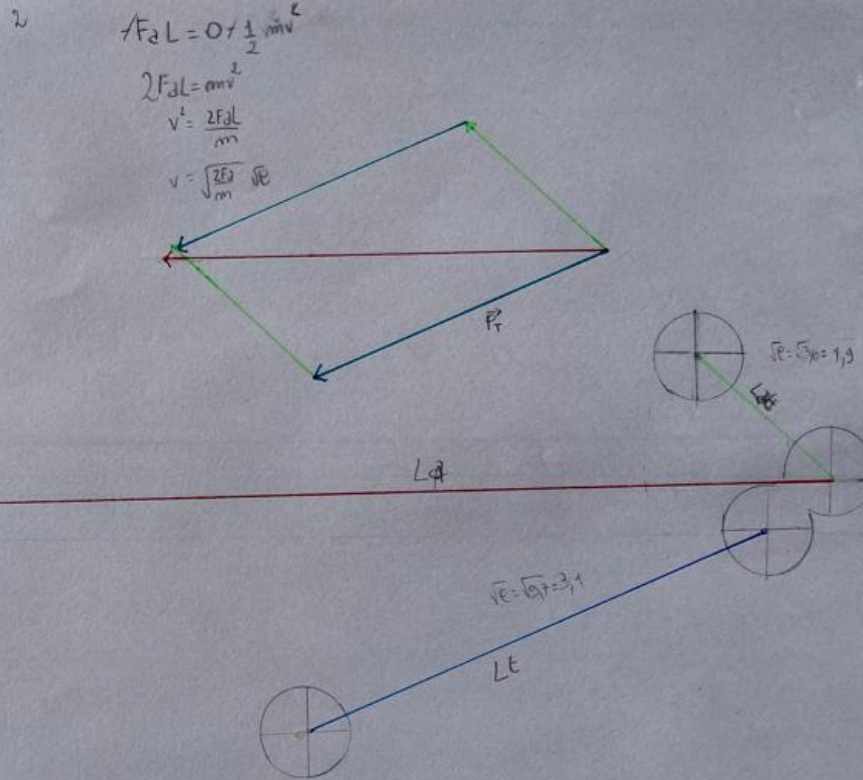 2
≠FaL = 0 ≠ 1/2 mv²
2FaL = mv²
v² = 2FaL/m
v = √(2Fa/m) √ℓ
P⃗т
√ℓ = √3,6 = 1,9
L
√ℓ = √9,7 = 3,1
Lt